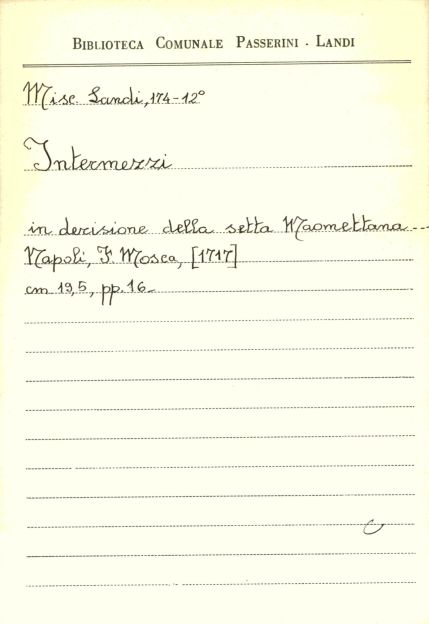 BIBLIOTECA COMUNALE PASSERINI - LANDI
Misc. Landi, 174-12°
Intermezzi
in derisione della setta Maomettana --
Napoli, F. Mosca, [1717]
cm 19,5, pp. 16_